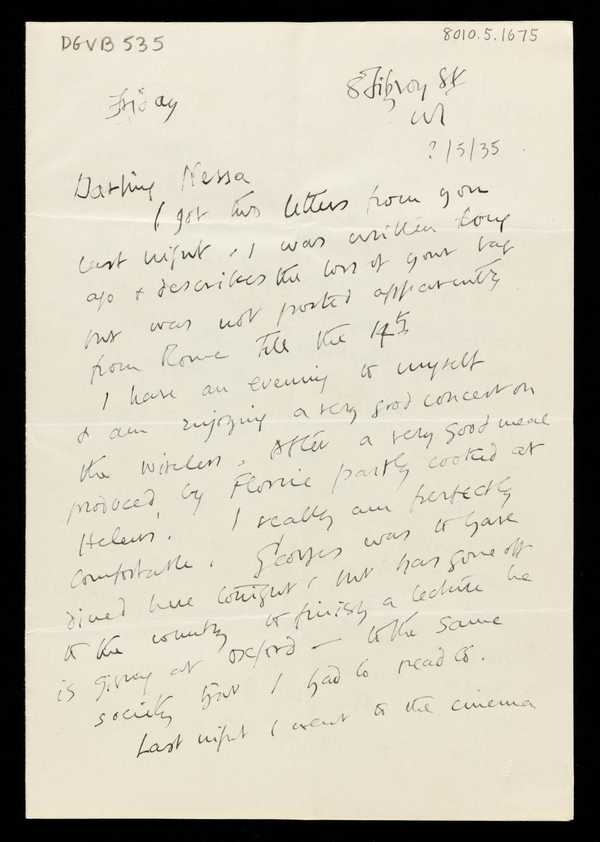 DGVB 535
8010.5.1675
Friday
8 Fitzroy St
W1
?/5/35
Darling Nessa
I got two letters from you
last night, 1 was written long
ago & describes the loss of your bag
but was not posted apparently
from Rome till the 14th
I have an evening to myself
& am enjoying a very good concert on
the wireless, after a very good meal
produced by Florrie partly cooked at
Helens'. I really am perfectly
comfortable. Georges was to have
dined here tonight, but has gone off
to the country to finish a lecture he
is giving at Oxford — to the same
society that I had to read to.
Last night I went to the cinema